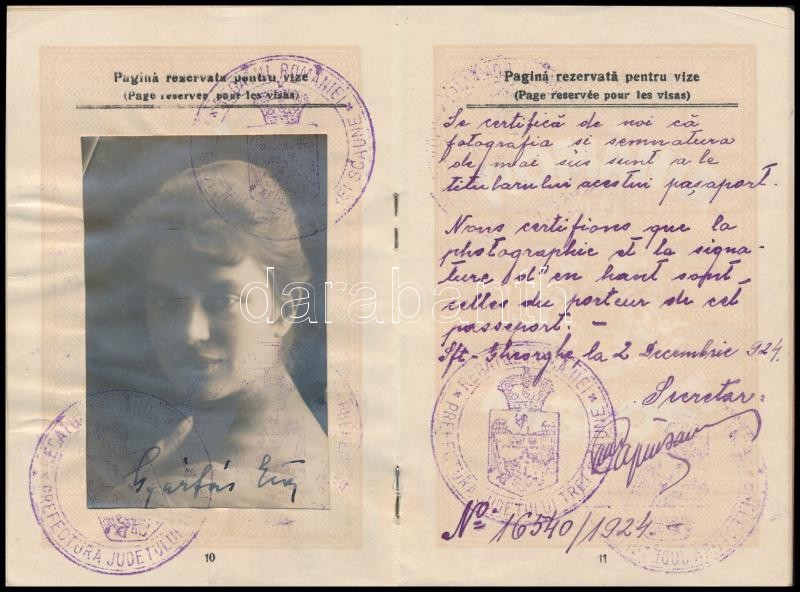 Pagină rezervata pentru vize
(Page reservée pour les visas)
REGATUL ROMANIEI
Gyárfás
PREFECTURA JUDETULUI
10
Pagină rezervată pentru vize
(Page reservée pour les visas)
Se certifică de noi că
fotografia si semnatura
de mai sus sunt ale
titularului acestui paşaport.
Nous certifions que la
photographie et la signa-
ture d'en haut sont
celles du porteur de cet
passeport. —
Sft-Gheorghe la 2 Decembrie 924.
Secretar:
PREFECTURA JUDETULUI TREI SCAUNE
No. 16540/1924. —
11
darabanth